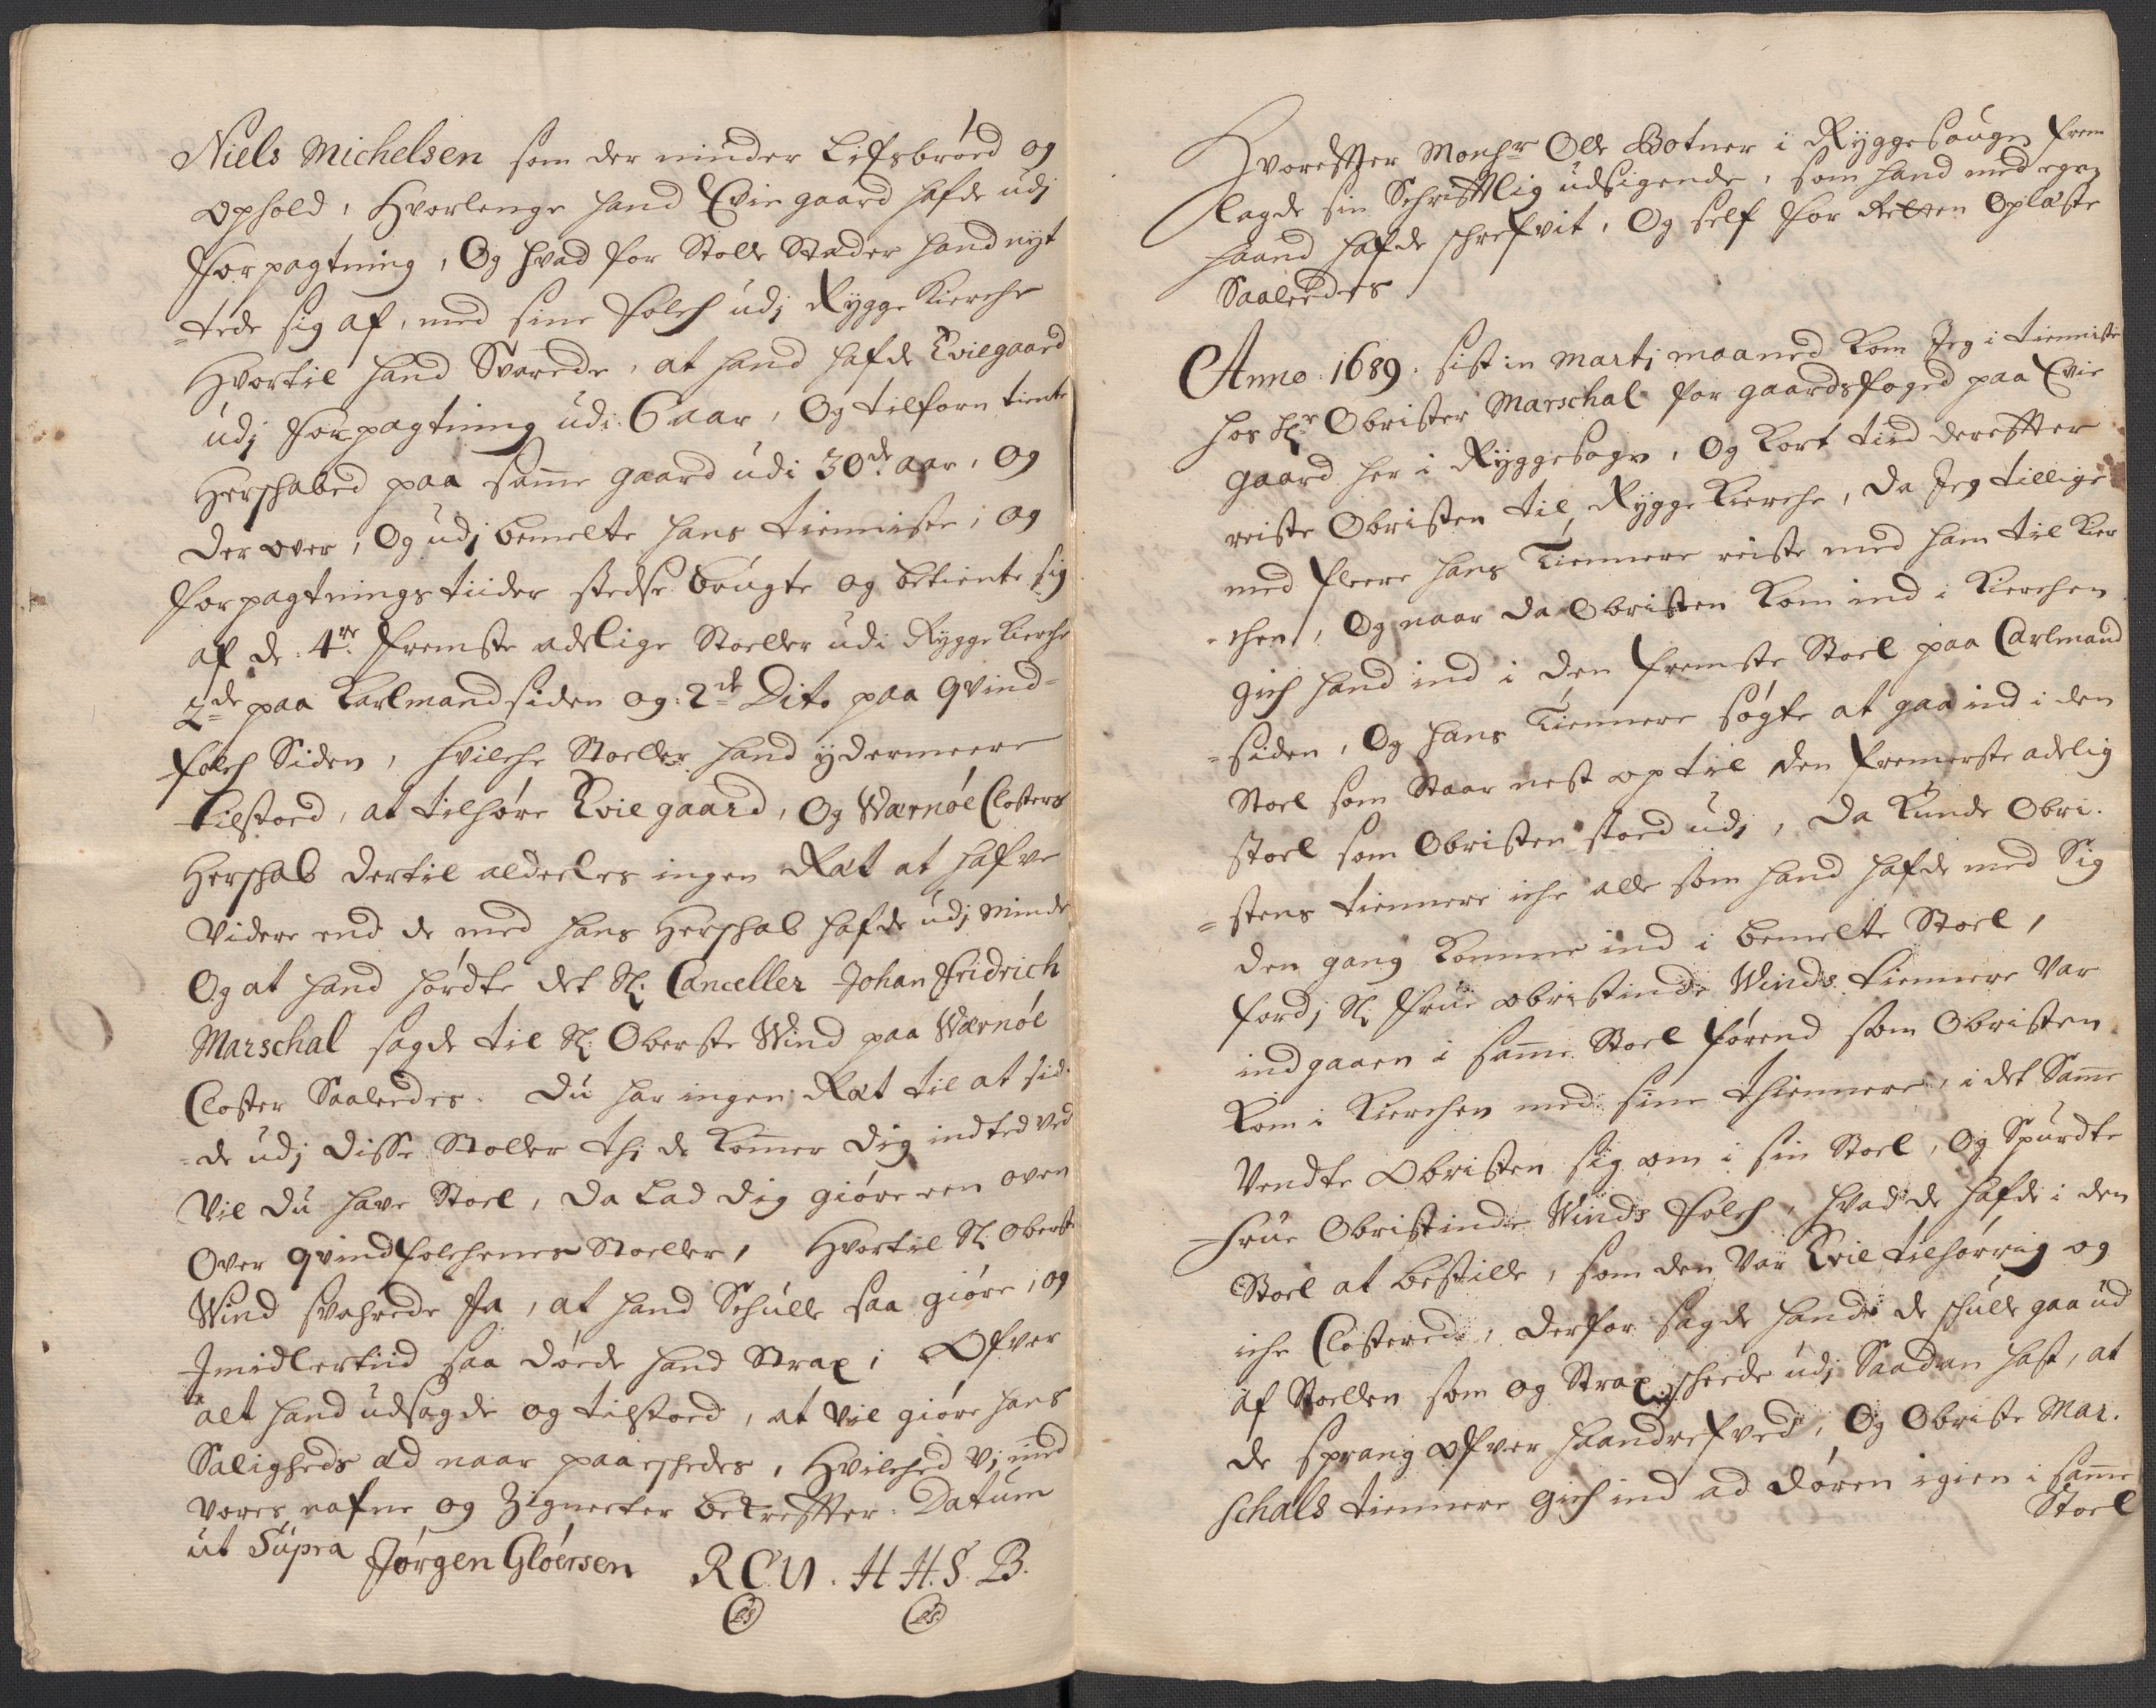 Niels Michelsen som der niuder Lifsbrød og
ophold, Hvorlenge hand Evie gaard hafde udj
forpagtning, Og hvad for Stolle Stæder hand nyt
=tede sig af, med sine folch udj Rygge Kierche
Hvortil hand Svarede, at hand hafde Evie gaard
udj forpagtning udi 6 aar, Og tilforn tiente
Herschabed paa samme gaard udi 30de aar, og
der over, Og udj bemelte hans tienniste, og
forpagtnings tiider stedse brugte og betiente sig
af de 4re fremste adelige Stoeller udi Rygge Kierche
2de paa Karlmand siden og 2de Dito paa qvind=
folch Siden, hvilche Stoeller hand ydermeere
tilstoed, at tilhøre Evie gaard, Og Wærnøe Closters
Herschab dertil aldeeles ingen Ræt at hafve
videre end de med hans Herschab hafde udj minde
Og at hand hørdte det Sl: Canceller Johan Fridrich
Marschal sagde til Sl: Oberste Wind paa Wærnøe
Closter Saaleedes. Du har ingen Ræt til at sid
=de udj disse Stoller thi de kommer dig indted ved
vil du have Stoel, da lad dig giøre een oven
over qvindfolchenes Stoeller, Hvortil Sl: Oberst
Wind svahrede Ja, at hand Schulle saa giøre, og
Imidlertiid saa døede hand Strax; Ofver
alt hand udsagde og tilstoed, at vil giøre hans
Saligheds æd naar paaeschedes, Hvilched vj med
vores nafne og Zigneter bekreffter. Datum
ut Supra Jørgen Gløersen R C N. H H. S. B.
LS LS
Hvoreffter Monsr Olle Botner i Ryggesougn frem
lagde sin Schrifftlig udsigende, som hand med egen
haand hafde schrefvit, Og self for Retten Oplæste
Saaleedes
Anno 1689. sist in Martj maaned kom Jeg i tienniste
hos Hr Obrister Marschal for gaardsfoged paa Evie
gaard her i Ryggesogn, Og kort tiid dereffter
reiste Obristen til Rygge Kierche, da Jeg tillige
med fleere hans Tiennere reiste med ham til Kier
=chen, Og naar da Obristen kom ind i Kierchen
gich hand ind i den fremste Stoel paa Carlmand
=siden, Og hans Tiennere søgte at gaa ind i den
Stoel som Staar nest op til den fremerste adelig
stoel som Obristen stoed udj, da kunde Obri.
=stens tiennere iche alle som hand hafde med Sig
den gang komme ind i bemelte Stoel,
fordj Sl: frue obristinde Winds tiennere var
indgaaen i samme Stoel førend som Obristen
kom i Kierchen med sine thiennere, i det Samme
vendte Obristen sig om i sin Stoel, Og Spurdte
frue Obristinde Winds folch, hvad de hafde i den
Stoel at bestille, som den var Evie tilhørrig og
iche Closteret, derfor sagde hand de schulle gaa ud
af Stoellen som og Strax scheede udj Saadan hast, at
de sprang ofver haandrefved, Og Obriste Mar.
schals tiennere gich ind ad døren igien i samme
Stoel